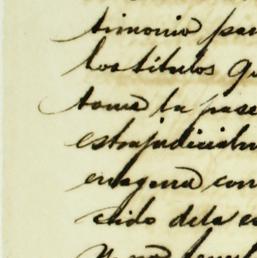 timonio par
los titulos qu
toma la pose
estrajudicialm
enagena con
cido dela e